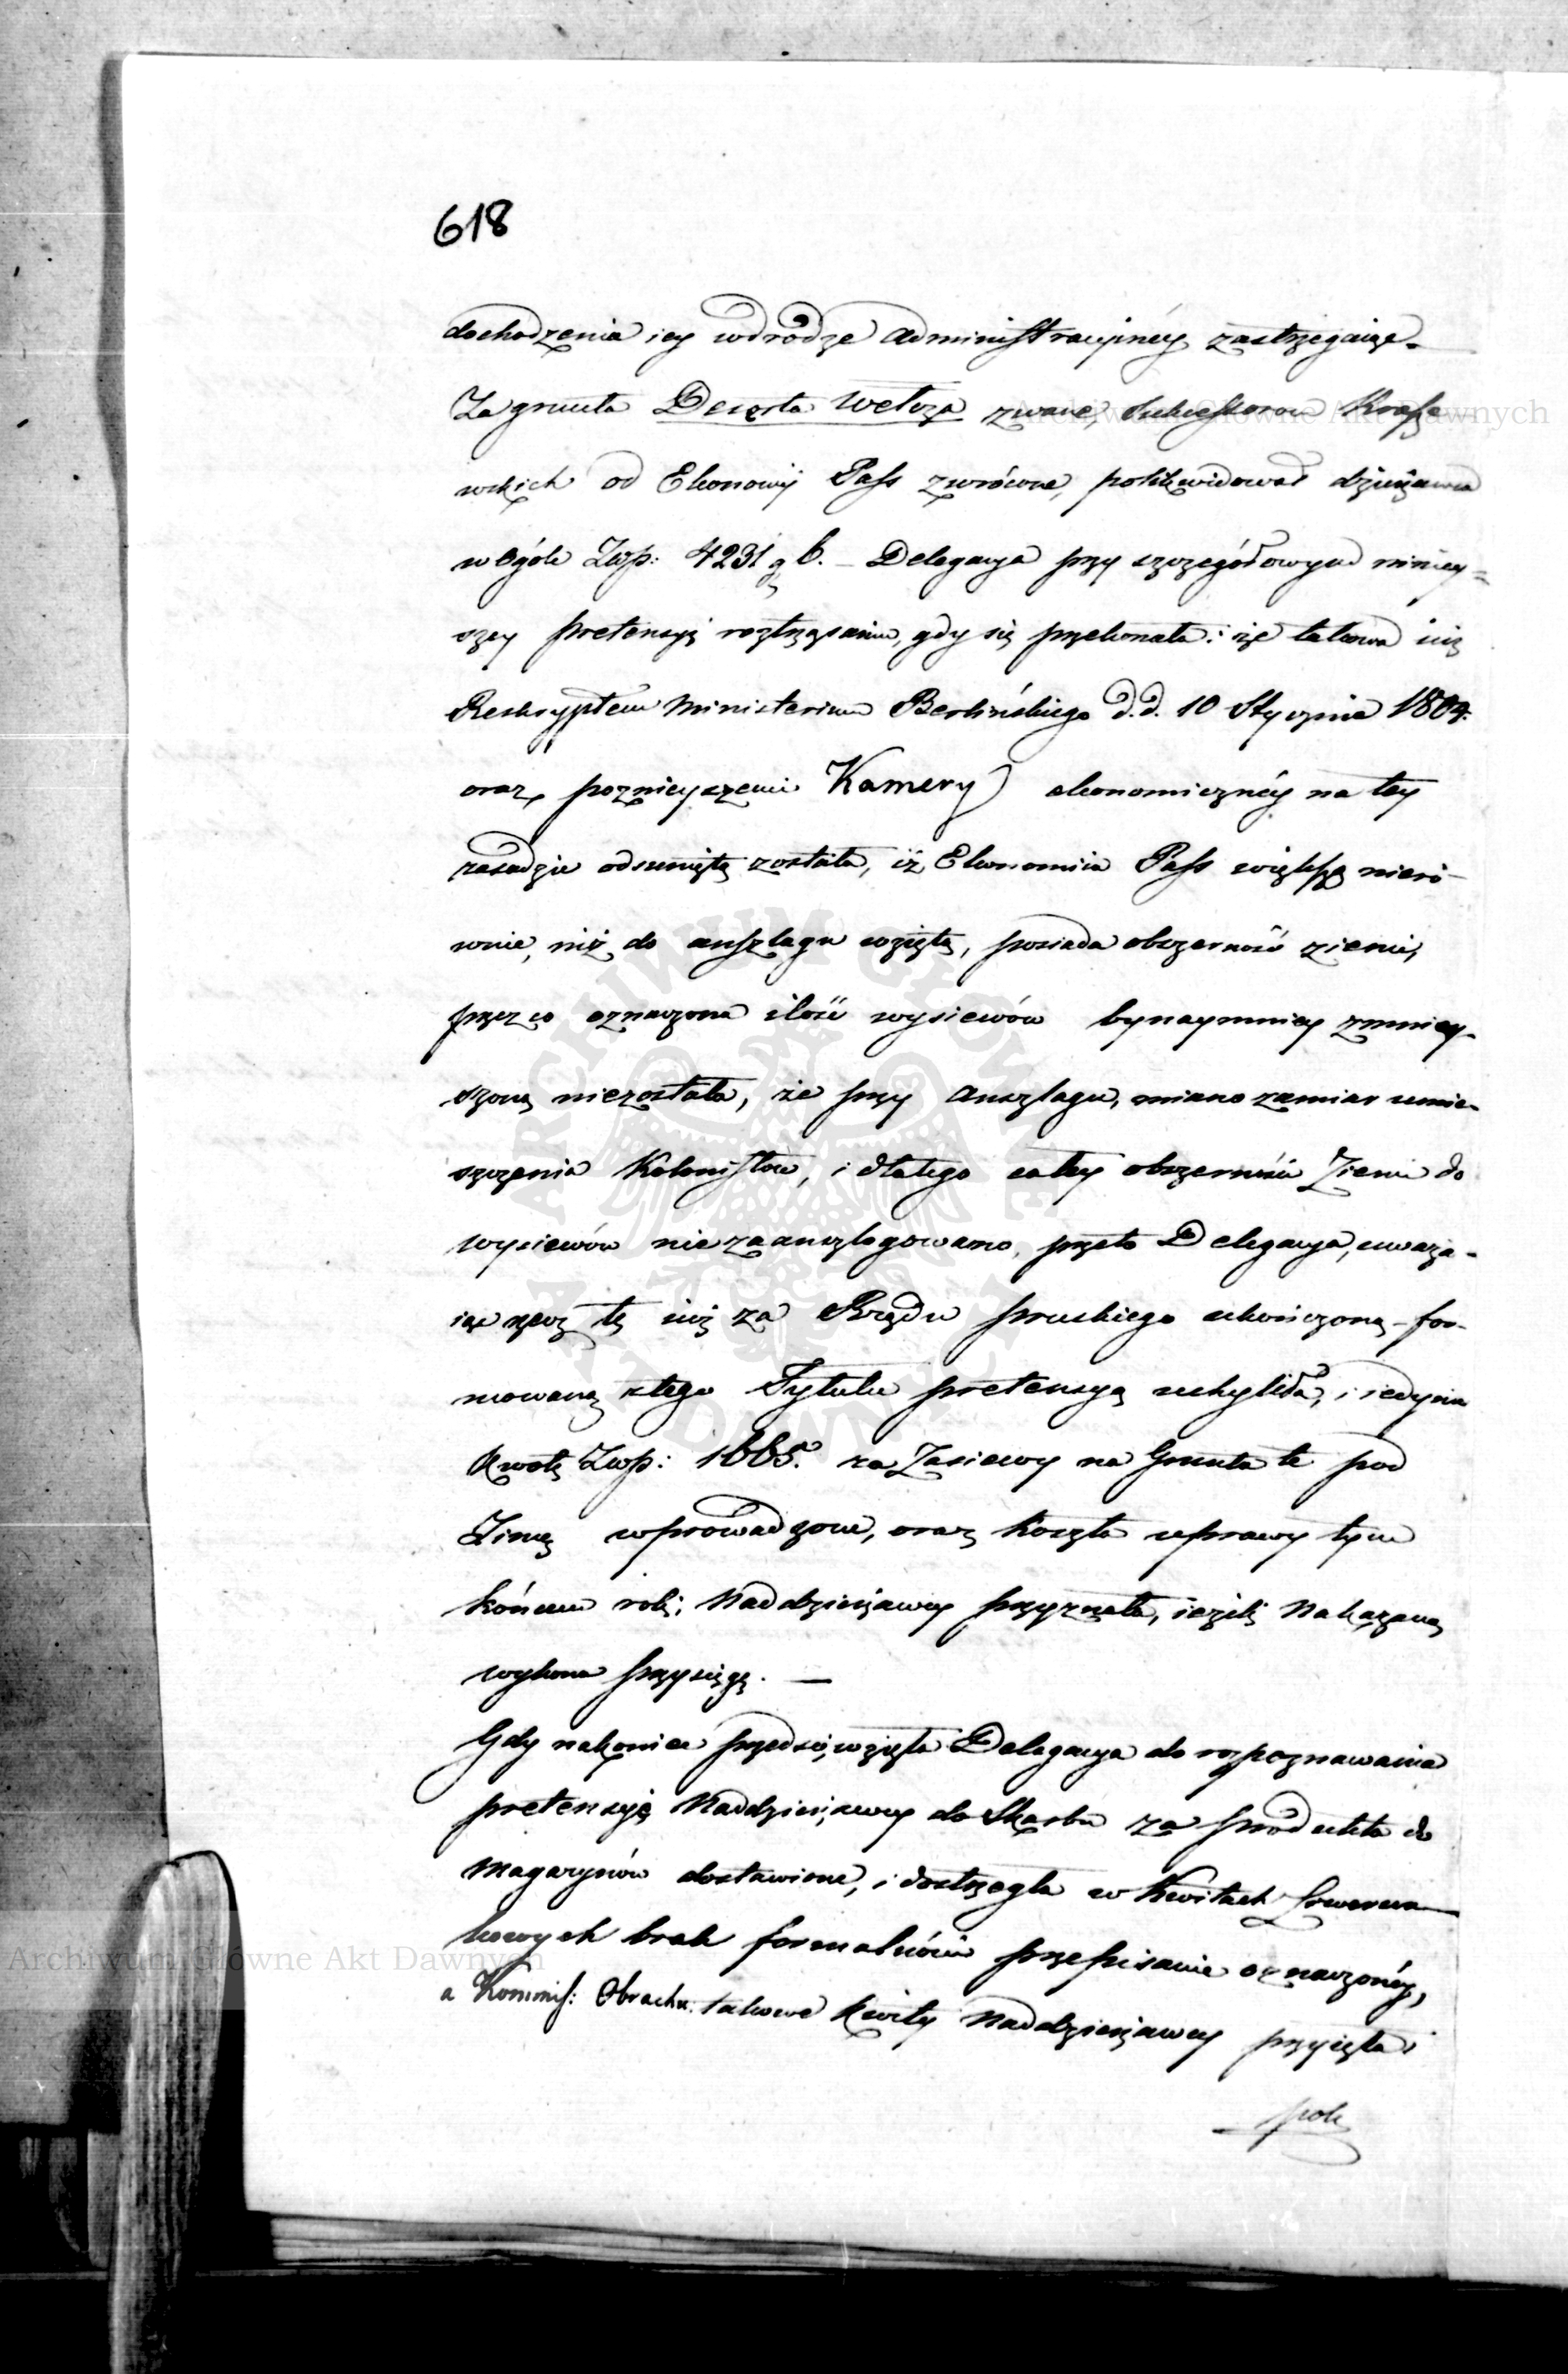 618
dochodzenia iey w drodze Administracyinéy zastrzegaiąc.
Za grunta Deszta Wetcza zwane, Sukcessorow Krasze
wskich od Ekonomij Pass zwrócone, polikwidował dzierżawca
w Ogóle Złłp: 4231 g 6. – Delegacya przy szczegółowym niniey=
szey pretensyi roztrząsaniu, gdy się przekonała: iż takowa iuż
Reskryptem Ministerium Berlińskiego d. d. 10 Stycznia 1804.
oraz poznieyszemi Kamery ekonomicznéy na tey
zasadzie odsuniętą została, iż Ekonomiia Pass większą nieró-
wnie, niż do anszlagu wziętą, posiada obszerność ziemi,
przez co oznaczona ilość wysiewów bynaymniey zmniey-
szoną niezostała, że przy Anszlagu, miano zamiar umie-
szczenia Kolonistow, i dlatego całey obszerności Ziemi do
wysiewów niezaanszlagowano, przeto Delegacya, uważa-
iąc rzecz tę iuż za Rządu pruskiego ukończoną – for-
mowaną z tego Tytułu pretensyą uchyliła, i iedynie
Kwotę Złłp: 1665. za Zasiewy na Grunta te pod
Zimę wprowadzone, oraz koszta uprawy tym
końcem roli, Naddzierżawcy przyznała, ieżeli nakazaną
wykona przysięgę. —
Gdy nakoniec przedsięwzięła Delegacya do rozpoznawania
pretensyę Naddzierżawcy do Skarbu za produkta do
Magazynów dostawione, i dostrzegła w Kwitach
brak formalności przepisami oznaczonéy,
a Kommiss: Obrachu. takowe kwity Naddzierżawcy przyięła i
pok
Archiwum Główne Akt Dawnych
Archiwum Główne Akt Dawnych
ARCHIWUM GŁÓWNE AKT DAWNYCH